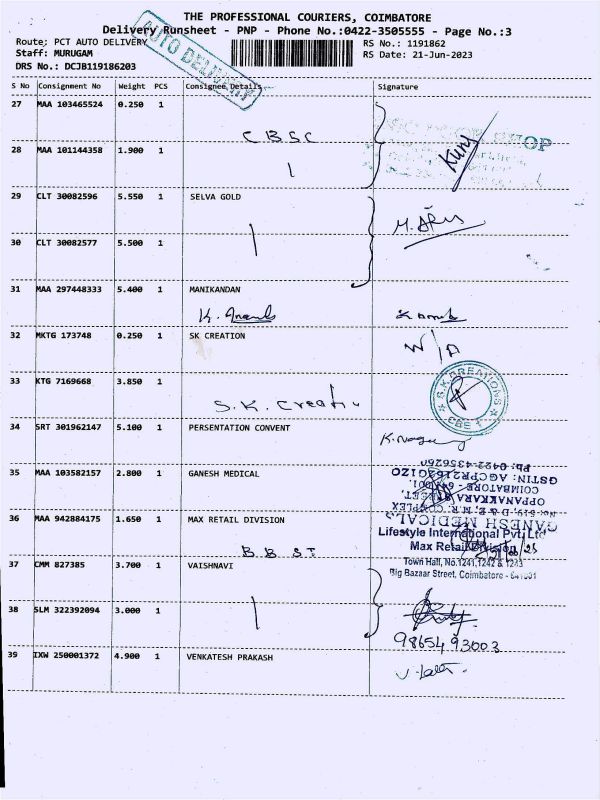 THE PROFESSIONAL COURIERS, COIMBATORE
Delivery Runsheet - PNP - Phone No.:0422-3505555 - Page No.:3
Route: PCT AUTO DELIVERY
AUTO DELIVERY
RS No.: 1191862
Staff: MURUGAM
RS Date: 21-Jun-2023
DRS No.: DCJB119186203
S No Consignment No Weight PCS Consignee Details Signature
27 MAA 103465524 0.250 1
CBSC
28 MAA 101144358 1.900 1
29 CLT 30082596 5.550 1 SELVA GOLD
30 CLT 30082577 5.500 1
31 MAA 297448333 5.400 1 MANIKANDAN
32 MKTG 173748 0.250 1 SK CREATION
W/A
33 KTG 7169668 3.850 1
S.K. CREATIONS
CBE 1
34 SRT 301962147 5.100 1 PERSENTATION CONVENT
35 MAA 103582157 2.800 1 GANESH MEDICAL
Ph: 0422-4356260
COIMBATORE - 641001.
OPPANAKKARA STREET,
GANESH MEDICALS
36 MAA 942884175 1.650 1 MAX RETAIL DIVISION
Lifestyle International Pvt. Ltd
Max Retail Division
Town Hall, No.1241,1242 & 1243
Big Bazaar Street, Coimbatore - 641001
37 CMM 827385 3.700 1 VAISHNAVI
38 SLM 322392094 3.000 1
9865493003
39 IXW 250001372 4.900 1 VENKATESH PRAKASH